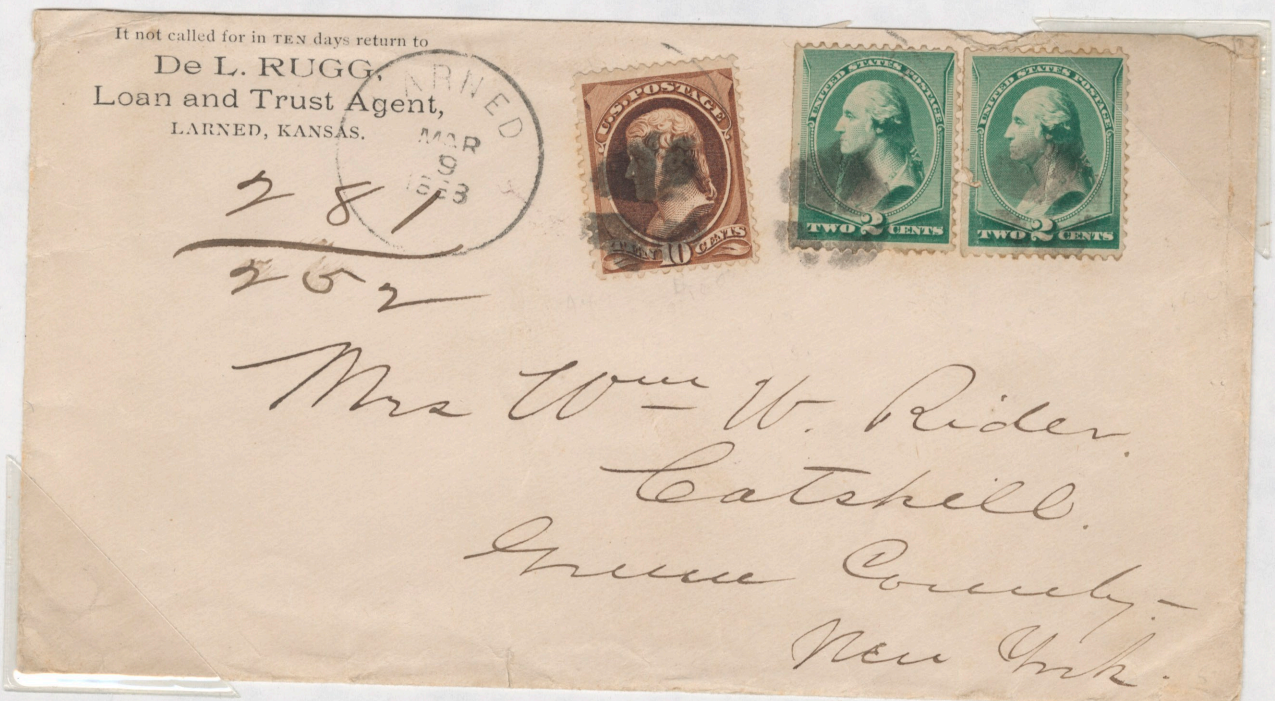 It not called for in TEN days return to
De L. RUGG,
Loan and Trust Agent,
LARNED, KANSAS.
LARNED
MAR
9
1888
U.S. POSTAGE
TEN 10 CENTS
UNITED STATES POSTAGE
TWO 2 CENTS
UNITED STATES POSTAGE
TWO 2 CENTS
281
252
Mrs Wm W. Rider.
Catskill.
Greene County-
New York.